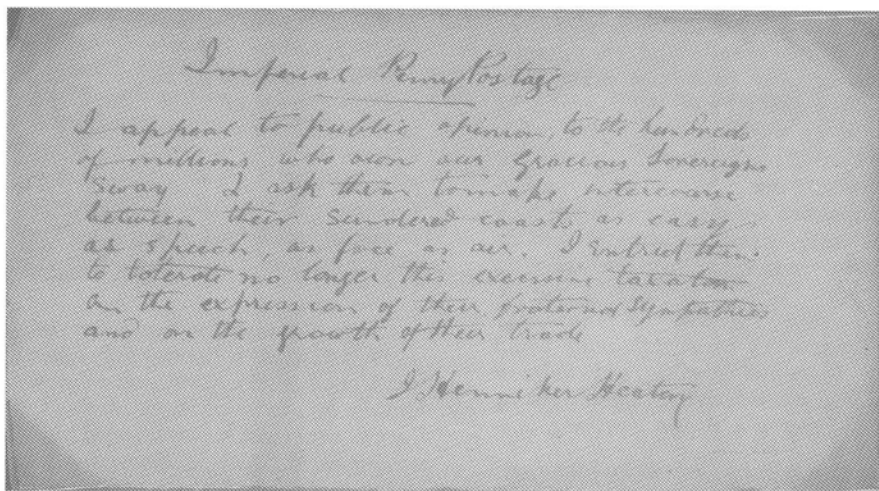 Imperial Penny Postage
I appeal to public opinion, to the hundreds
of millions who own our Gracious Sovereigns
Sway I ask them to make intercourse
between their sundered coasts as easy
as speech, as free as air. I entreat them
to tolerate no longer this excessive taxation
on the expression of their fraternal sympathies
and on the growth of their trade
J Henniker Heaton